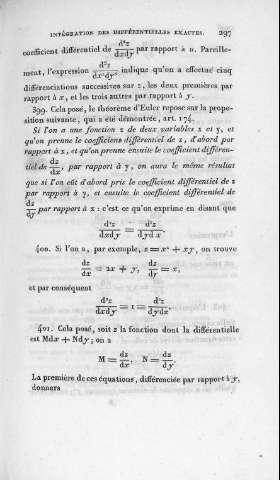 INTÉGRATION DES DIFFÉRENTIELLES EXACTES. 297
coefficient différentiel de d²z/dxdy par rapport à u. Pareille-
ment, l'expression d⁵z/dx²dy³ indique qu'on a effectué cinq
différenciations successives sur z, les deux premières par
rapport à x, et les trois autres par rapport à y.
399. Cela posé, le théorème d'Euler repose sur la propo-
sition suivante, qui a été démontrée, art. 174.
Si l'on a une fonction z de deux variables x et y, et
qu'on prenne le coefficient différentiel de z, d'abord par
rapport à x, et qu'on prenne ensuite le coefficient différen-
tiel de dz/dx, par rapport à y, on aura le même résultat
que si l'on eût d'abord pris le coefficient différentiel de z
par rapport à y, et ensuite le coefficient différentiel de
dz/dy par rapport à x : c'est ce qu'on exprime en disant que
d²z/dxdy = d²z/dydx.
400. Si l'on a, par exemple, z = x² + xy, on trouve
dz/dx = 2x + y, dz/dy = x,
et par conséquent
d²z/dxdy = 1 = d²z/dydx.
401. Cela posé, soit z la fonction dont la différentielle
est Mdx + Ndy; on a
M = dz/dx, N = dz/dy.
La première de ces équations, différenciée par rapport à y,
donnera